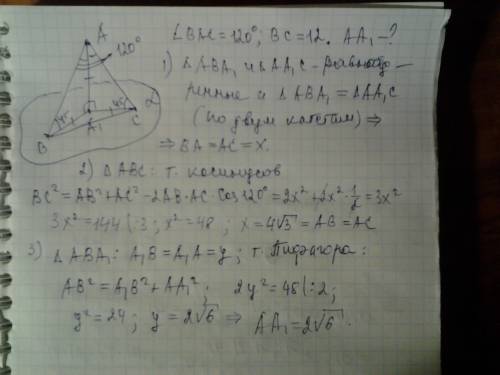 A
120°
45°
45°
A₁
B
C
α
∠BAC = 120°; BC = 12. AA₁ - ?
1) △ABA₁ и △AA₁C - равнобед-
ренные и △ABA₁ = △AA₁C
(по двум катетам) ⇒
⇒ BA = AC = x.
2) △ABC: т. косинусов
BC² = AB² + AC² - 2AB·AC·Cos120° = 2x² + 2x²·1/2 = 3x²
3x² = 144 |:3; x² = 48; x = 4√3 = AB = AC
3) △ABA₁: A₁B = A₁A = y; т. Пифагора:
AB² = A₁B² + AA₁²; 2y² = 48 |:2;
y² = 24; y = 2√6 ⇒ AA₁ = 2√6.